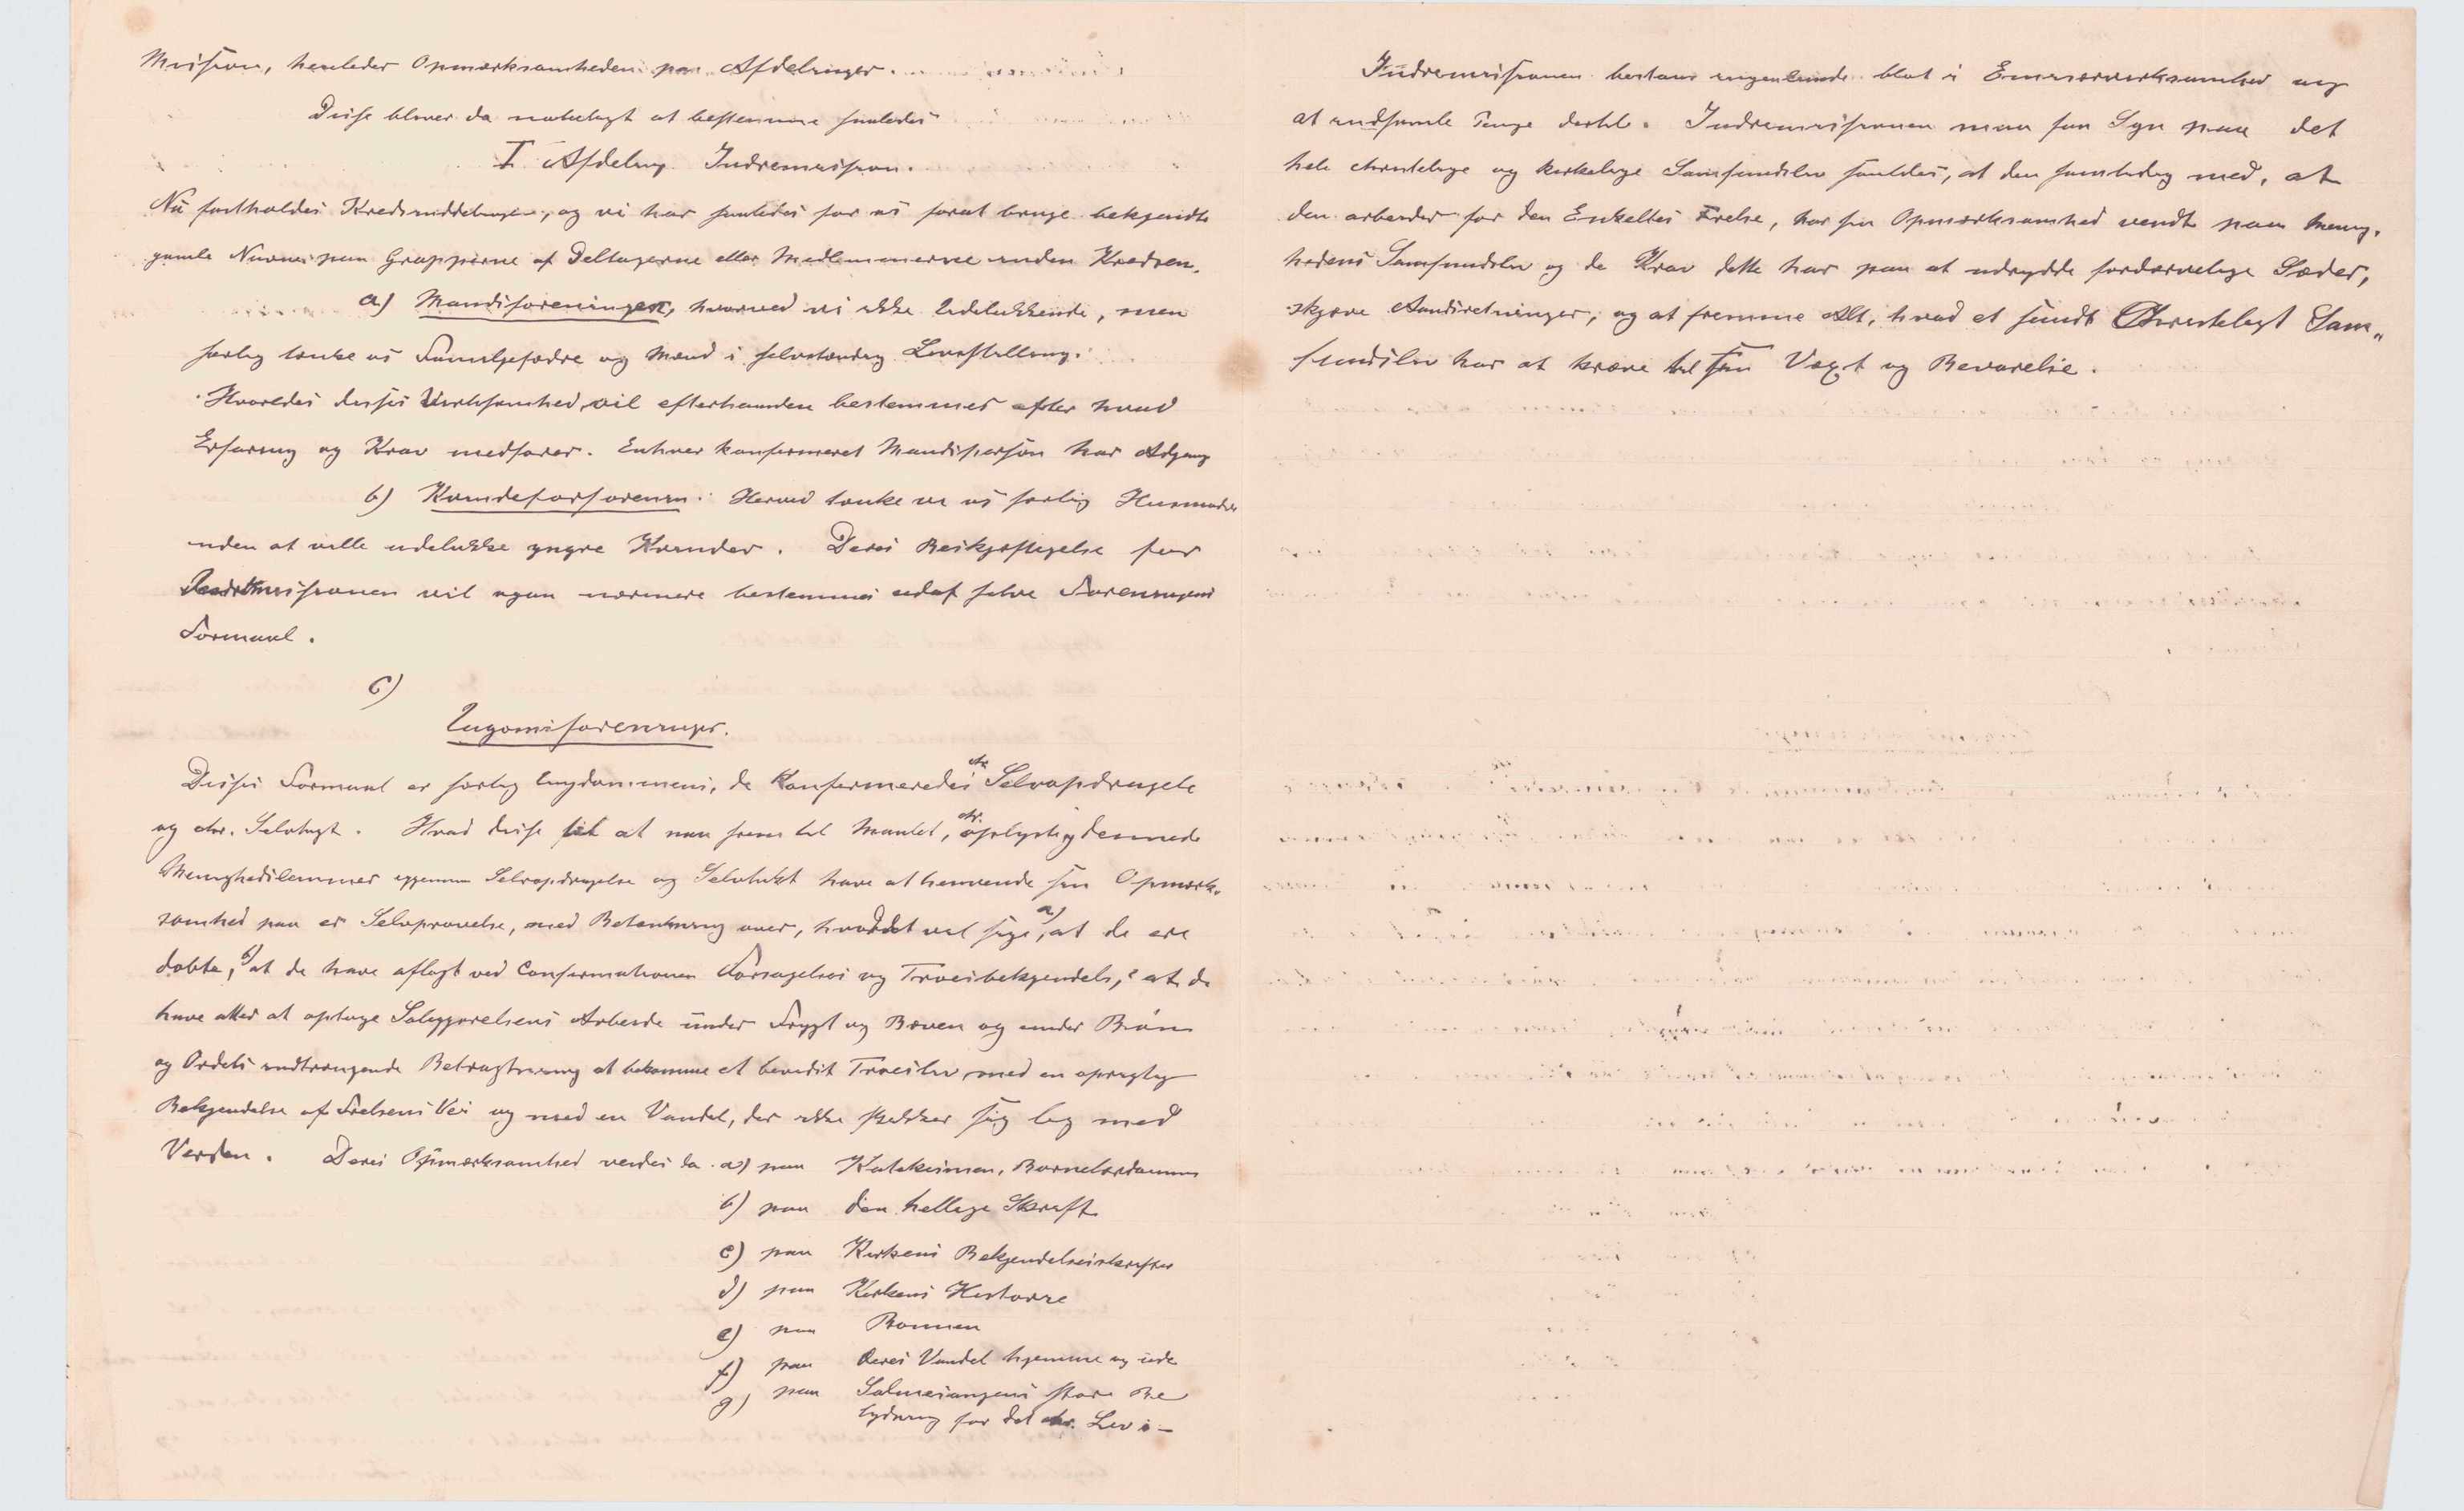 Mission, henleder Opmærksomheden paa Afdelinger.
Disse bliver da nødvendigt at bestemme saaledes
I Afdeling. Indremission.
Nu fastholdes Kredsinddelingen, og vi har saaledes for os forat bruge bekjendte
gamle Navne paa Grupperne af Deltagerne eller Medlemmerne inden Kredsen.
a) Mandsforeninger, hvorved vi ikke udelukkende, men
særlig tænke os Familjefædre og Mænd i selvstændig Livsstilling.
Hvorledes disses Virksomhed, vil efterhaanden bestemmes efter hvad
Erfaring og Krav medfører. Enhver konfirmeret Mandsperson har Adgang
b) Kvindeforforenin. Herved tænke vi os særlig Husmødre
uden at ville udelukke yngre Kvinder. Deres Beskjæftigelse for
Indremissionen vil ogsaa nærmere bestemmes udaf selve Foreningens
Formaal.
c)
Ungdomsforeninger.
Disses Formaal er særlig Ungdommens, de Konfirmeredes chr. Selvopdragelse
og chr. Selvtugt. Hvad disse til at naa frem til Maalet, chr. oplyste og dannede
Menighedslemmer igjennem Selvopdragelse og Selvtukt have at henvende sin Opmærk-
somhed paa er Selvprøvelse, med Betænkning over, hvad det vil sige, a) at de ere
døbte, b) at de have aflagt ved Confirmationen Forsagelses og Troesbekjendelse, c at de
have atter at optage Saliggjørelsens Arbeide under Frygt og Bæven og under Bøn
og Ordets indtrængende Betragtning at bekomme et bevidst Troesliv med en oprigtig
Bekjendelse af Frelsens Vei og med en Vandel, der ikke skikker sig lig med
Verden. Deres Opmærksomhed vendes da a) paa Katekismen, Børnelærdommen
b) paa den hellige Skrift
c) paa Kirkens Bekjendelsesskrifter
d) paa Kirkens Historie
e) paa Bønnen
f) paa deres Vandel hjemme og ude
g) paa Salmesangens store Be
tydning for det chr. Liv i -
Indremissionen bestaar ingenlunde blot i Emisærvirksomhed og
at indsamle Penge dertil. Indremissionen maa faa Syn paa det
hele christelige og kirkelige Samfundsliv saaledes, at den samtidig med, at
den arbeider for den Enkeltes Frelse, har sin Opmærksomhed vendt paa Menig-
hedens Samfundsliv og de Krav dette har paa at udrydde fordærvelige Sæder,
skjæve Aandsretninger, og at fremme Alt, hvad et sundt Christeligt Sam-
fundsliv har at kræve til sin Vext og Bevarelse.